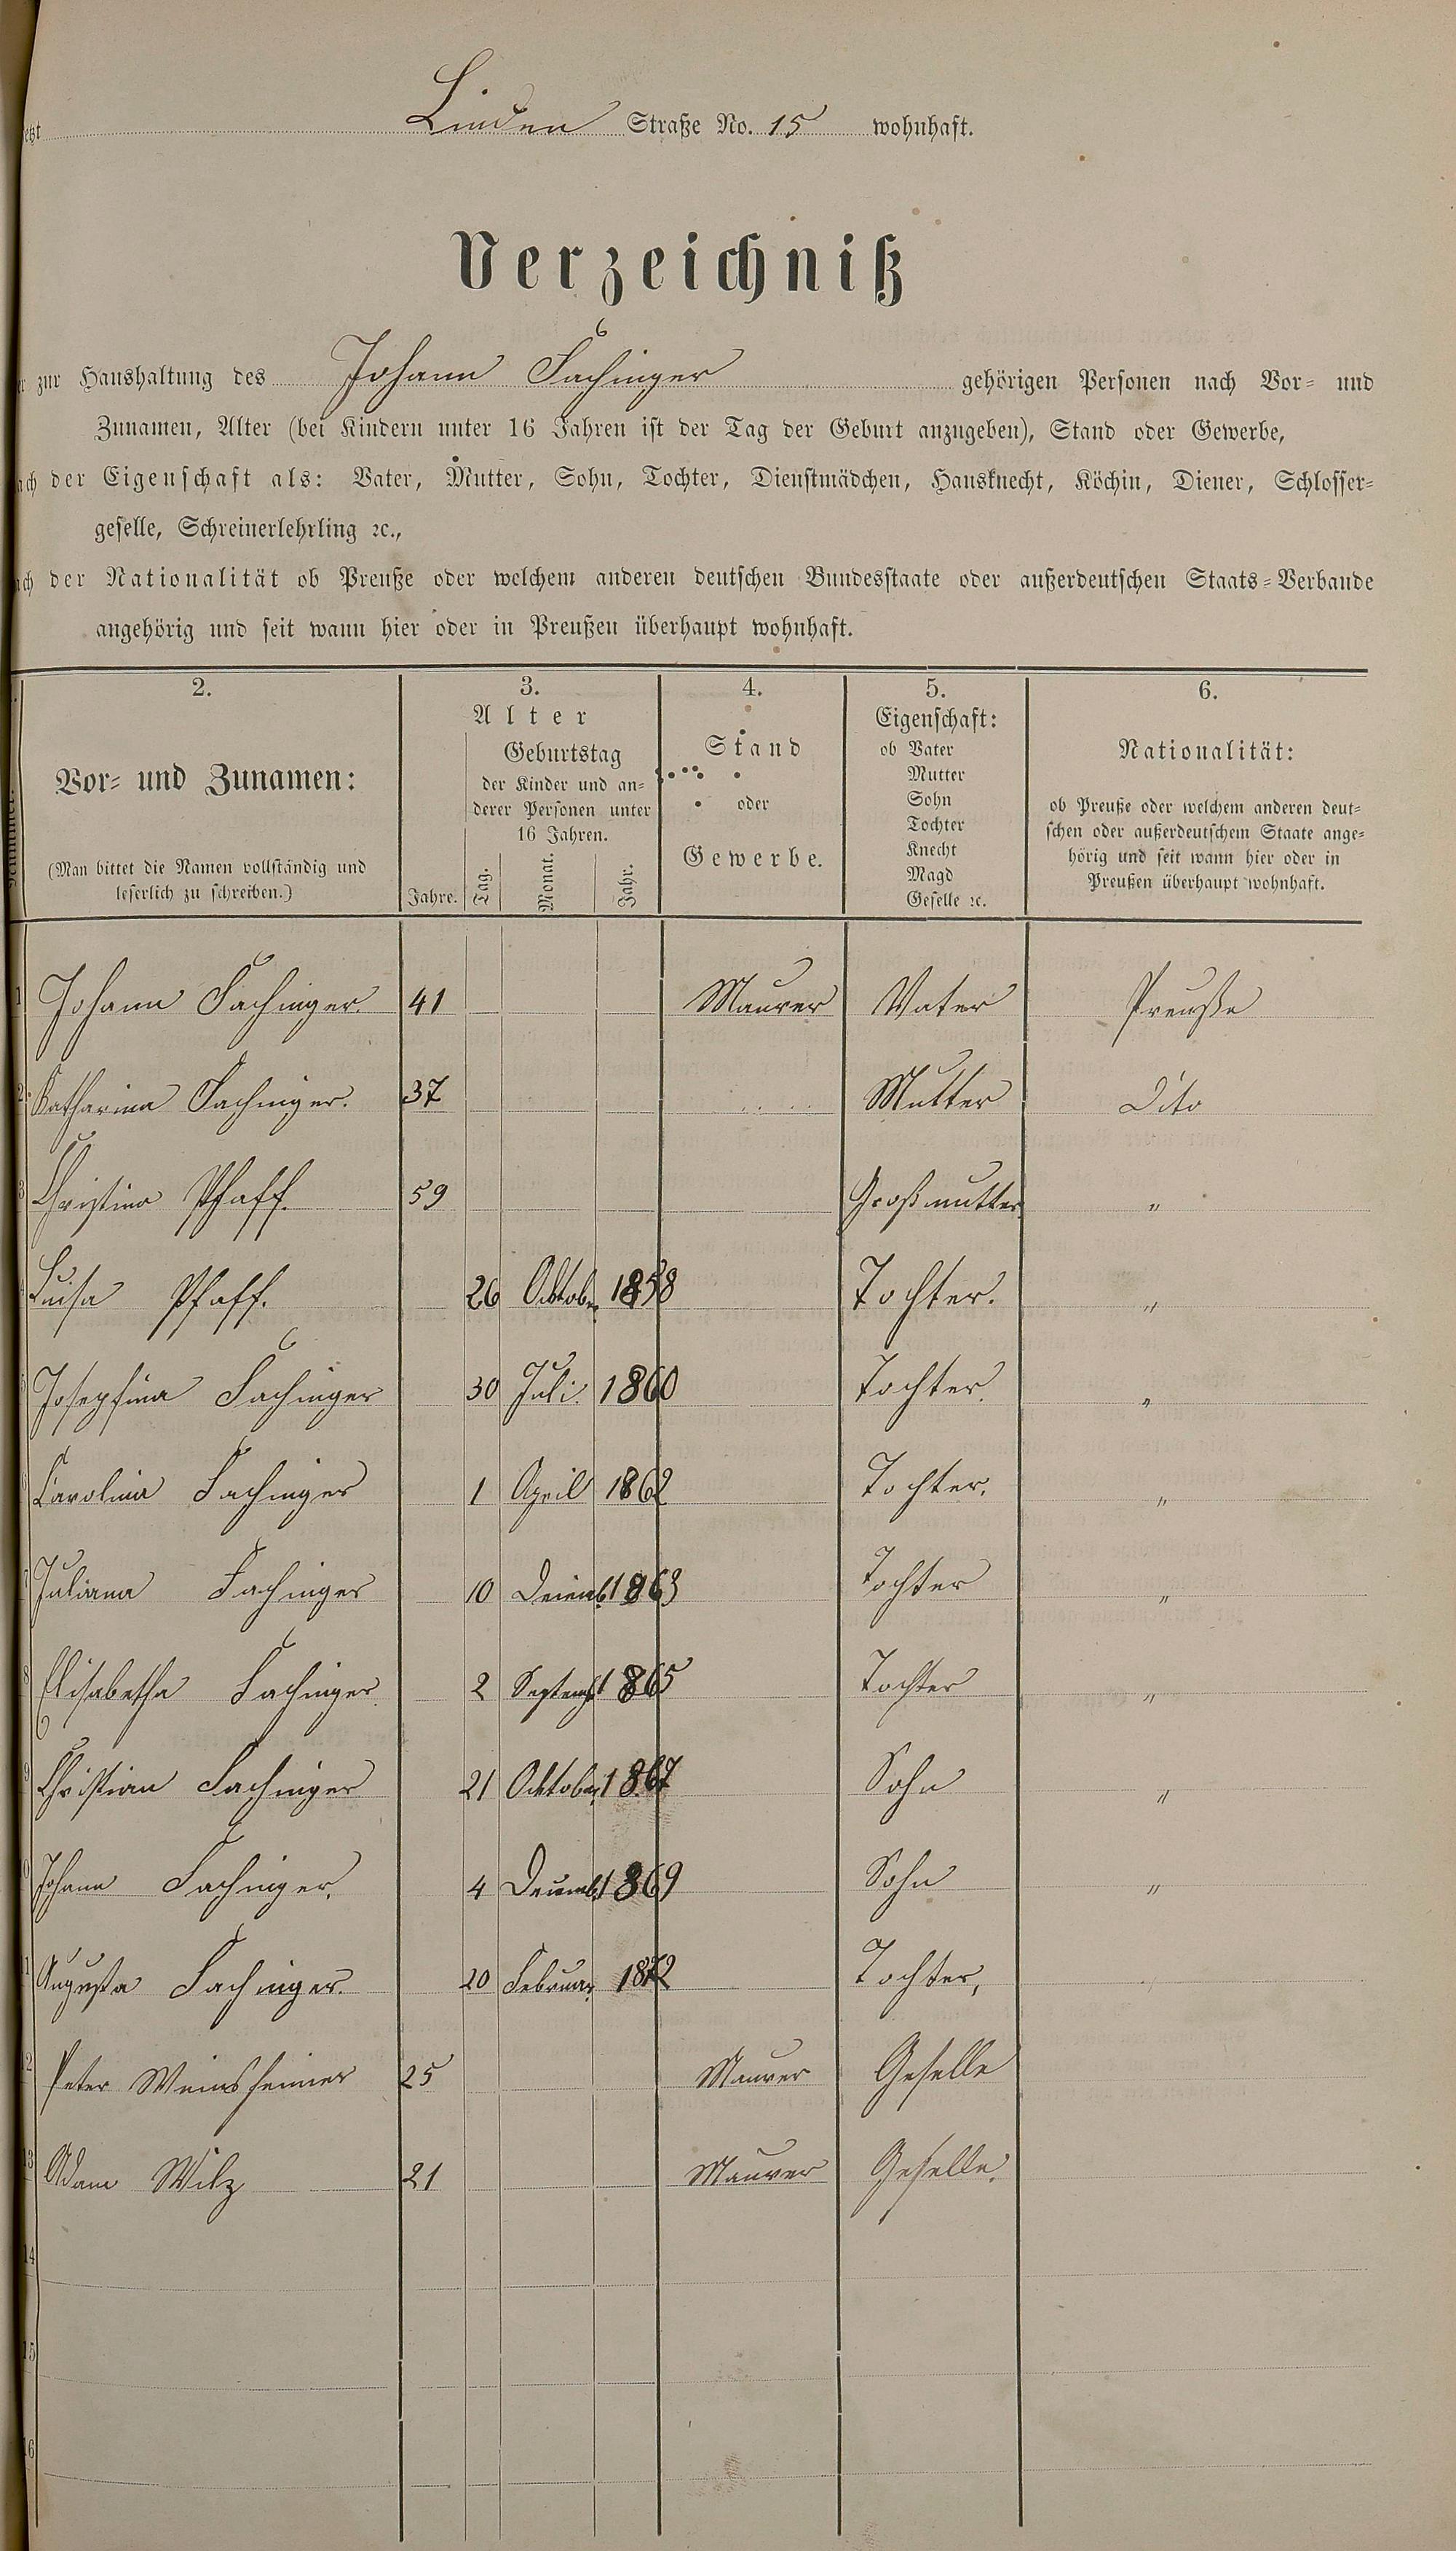 Linden Straße No. 15 wohnhaft.
Verzeichniß
zur Haushaltung des Johann Fachinger gehörigen Personen nach Vor- und
Zunamen, Alter (bei Kindern unter 16 Jahren ist der Tag der Geburt anzugeben), Stand oder Gewerbe,
der Eigenschaft als: Vater, Mutter, Sohn, Tochter, Dienstmädchen, Hausknecht, Köchin, Diener, Schlosser-
geselle, Schreinerlehrling ꝛc.,
der Nationalität ob Preuße oder welchem anderen deutschen Bundesstaate oder außerdeutschen Staats-Verbande
angehörig und seit wann hier oder in Preußen überhaupt wohnhaft.
2.
Vor- und Zunamen:
(Man bittet die Namen vollständig und
leserlich zu schreiben.)
3.
Alter
Geburtstag
der Kinder und an-
derer Personen unter
16 Jahren.
Jahre. Tag. Monat. Jahr.
4.
Stand
oder
Gewerbe.
5.
Eigenschaft:
ob Vater
Mutter
Sohn
Tochter
Knecht
Magd
Geselle ꝛc.
6.
Nationalität:
ob Preuße oder welchem anderen deut-
schen oder außerdeutschem Staate ange-
hörig und seit wann hier oder in
Preußen überhaupt wohnhaft.
1 Johann Fachinger. 41 Maurer Vater Preuße
2 Katharina Fachinger. 37 Mutter Dito
3 Christina Pfaff. 59 Großmutter "
Luisa Pfaff. 26 Oktober 1858 Tochter. "
5 Josephina Fachinger 30 Juli. 1860 Tochter. "
6 Carolina Fachinger 1 April 1862 Tochter. "
7 Juliana Fachinger 10 1863 Tochter "
8 Elisabetha Fachinger. 2 Septemb 1865 Tochter "
9 Christian Fachinger 21 Oktober 1867 Sohn "
10 Johann Fachinger. 4 Decemb 1869 Sohn "
11 Augusta Fachinger. 20 Februar 1872 Tochter,
12 Peter Weinsheimer 25 Maurer Geselle
13 Adam Wilz 21 Maurer Geselle.
14
15
16